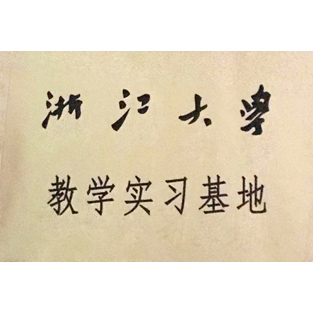 浙江大學
教学实习基地